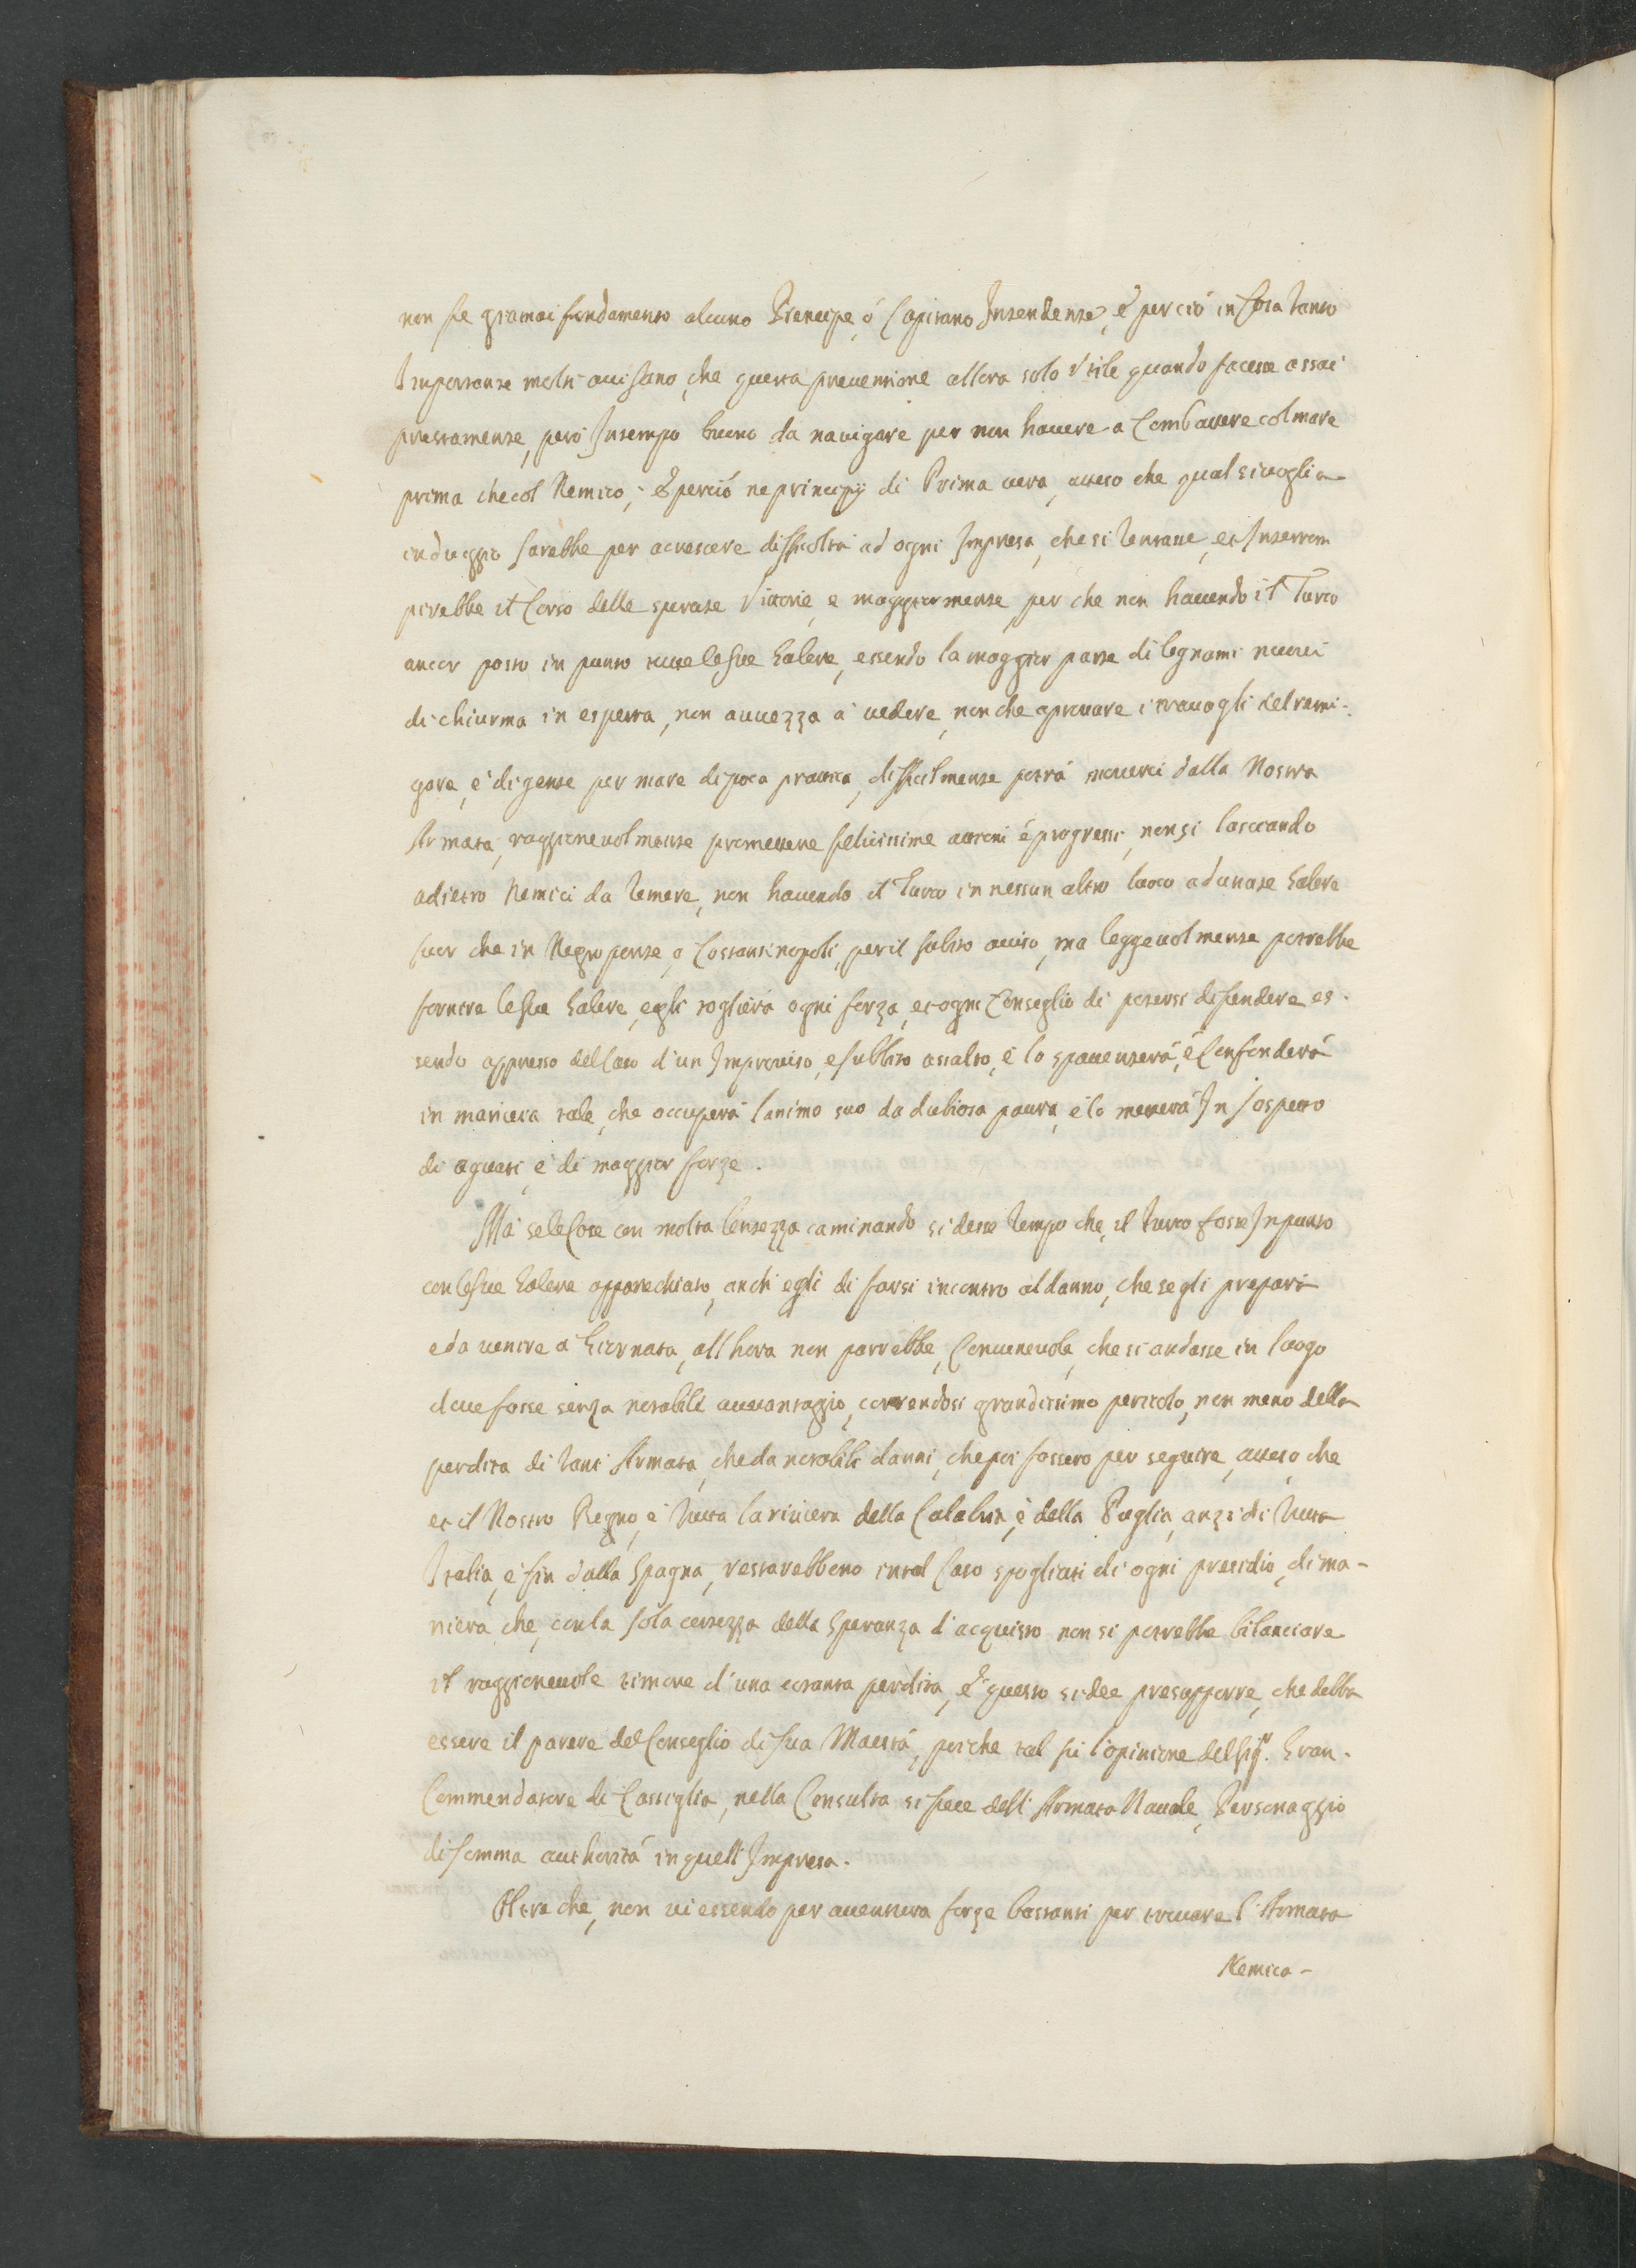 non fe gramai fondamento alcuno Prencipe, ó Capitano Intendente, é perció in Cosa tanto
Importante molti auisano, che questa preuentione allora solo Vtile quando facesse assai
prestamente, però In tempo buono da nauigare per non hauere a Combattere col mare
prima che col Nemico, é perció ne principij di Prima uera, atteso che qual si uoglia
induggio sarebbe per acrescere difficoltà ad ogni Impresa, che si tentasse, et Interrom
perebbe il Corso delle sperate Vittorie, e maggiormente, per che non hauendo il Turco
ancor posto in punto tutte le sue Galere, essendo la maggior parte di legnami nuoui
di chiurma in esperta, non auuezza à uedere, non che aprouare i trauagli del remi-
gare, è di gente per mare di poca prattica, difficilmente potrá mouerci dalla Nostra
Armata, raggioneuolmente promettere felicissime attioni é progressi, non si lasciando
adietro Nemici da temere, non hauendo il Turco in nessun altro luoco adunate Galere
fuor che in Negroponte, o Costantinopoli, per il subito auiso, ma leggeuolmente potrebbe
fornire le sue Galere, egli toglierà ogni forza, et ogni Conseglio di potersi difendere es-
sendo appresso del Caso d'un Improuiso, e subbito assalto, é lo spauenterá, é Confonderá
in maniera tale, che occuperà l'animo suo da dubiosa paura, é lo metterá In sospetto
di aguati, é di maggior forze.
Mà se le Cose con molta lentezza caminando si desse tempo che, il Turco fosse In punto
con le sue Galere apparechiato, anch'egli di farsi incontro al danno, che se gli prepara
e da uenire a Giornata, all'hora non parrebbe, Conueneuole, che si andasse in luogo
doue fosse senza notabile auuantaggio, correndosi grandissimo pericolo, non meno della
perdita di tant'Armata, che da notabili danni, che poi fossero per seguire, atteso, che
et il Nostro Regno, è tutta la riuiera della Calabria, é della Puglia, anzi di tutta
Italia, é fin dalla Spagna, restarebbeno in tal Caso spogliati di ogni presidio, di ma-
niera che, con la sola certezza della Speranza d'acquisto non si potrebbe bilanciare
il raggioneuole timore d'una cotanta perdita, é questo si dee presupporre, che debba
essere il parere del Conseglio di sua Maestá, poiche tal fù l'opinione del Sigr. Gran-
Commendatore di Castiglia, nella Consulta si fece dell'Armata Nauale, Personaggio
di somma authoritá in quell'Impresa.
Oltre che, non ui essendo per auentura forze bastanti per trouare l'Armata
Nemica-